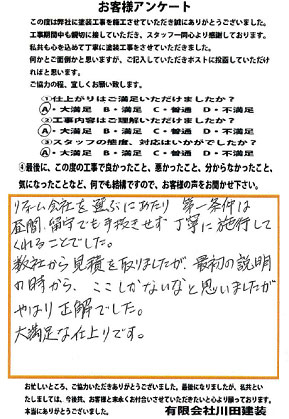 お客様アンケート
この度は弊社に塗装工事を施工させていただき誠にありがとうございました。
工事期間中も親切に接していただき、スタッフ一同心より感謝しております。
私共も心を込めて丁寧に塗装工事をさせていただきました。
何かとご面倒かと思いますが、ご記入していただきポストに投函していただけ
ればと思います。
ご協力の程、宜しくお願い致します。
①仕上がりはご満足いただけましたか?
A・大満足 B・満足 C・普通 D・不満足
②工事内容はご理解いただけましたか?
A・大満足 B・満足 C・普通 D・不満足
③スタッフの態度、対応はいかがでしたか?
A・大満足 B・満足 C・普通 D・不満足
④最後に、この度の工事で良かったこと、悪かったこと、分からなかったこと、
気になったことなど、何でも結構ですので、お客様の声をお聞かせ下さい。
リフォーム会社を選ぶにあたり 第一条件は
昼間、留守でも手抜きせず丁寧に施行して
くれることでした。
数社から見積を取りましたが、最初の説明
の時から、ここしかないなと思いましたが
やはり正解でした。
大満足な仕上りです。
お忙しいところ、ご協力いただきありがとうございました。最後になりましたが、私共とい
たしましては、今後共、お客様と末永くお付合いさせていただきたいと心より願っております。
本当にありがとうございました。 有限会社川田建装